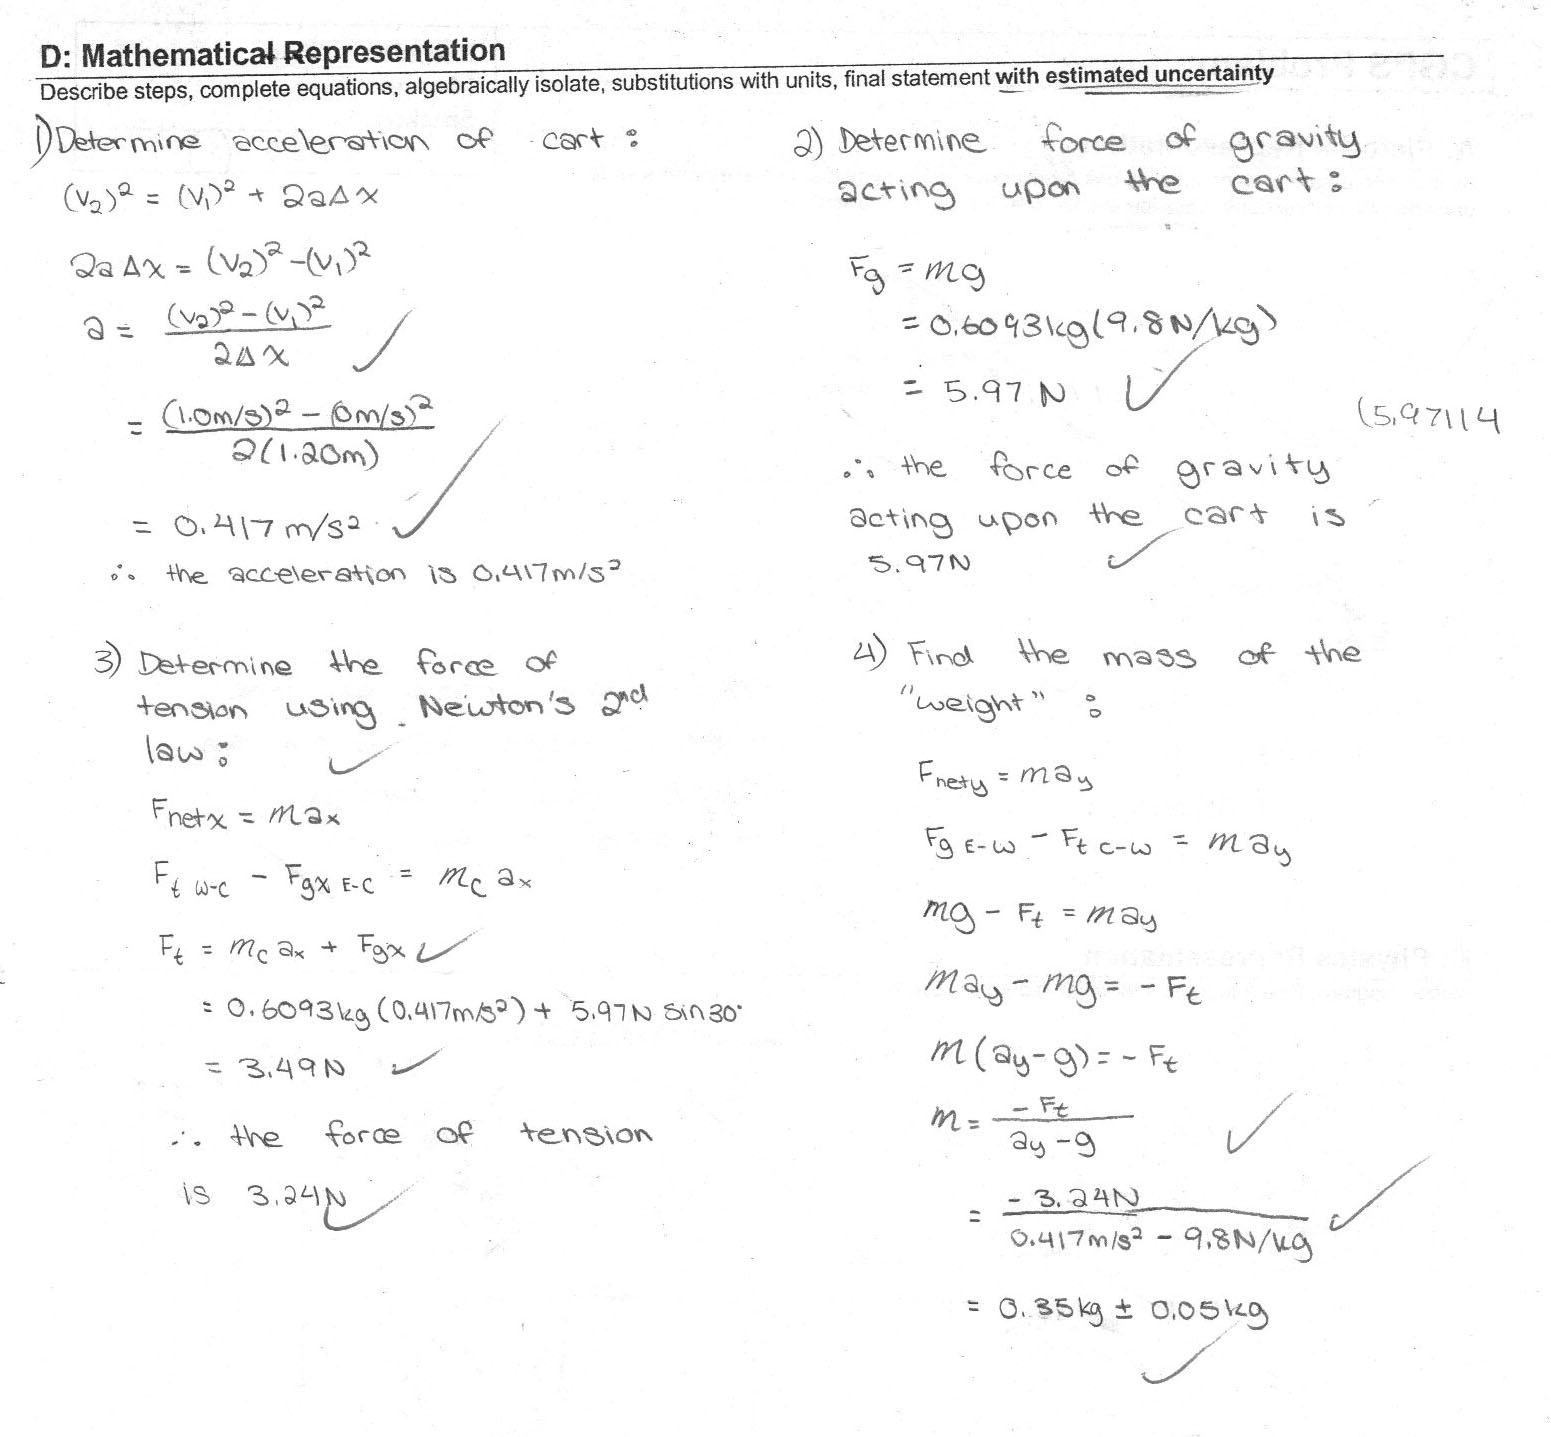 D: Mathematical Representation
Describe steps, complete equations, algebraically isolate, substitutions with units, final statement with estimated uncertainty
1) Determine acceleration of cart :
(v₂)² = (v₁)² + 2aΔx
2aΔx = (v₂)² - (v₁)²
a = (v₂)² - (v₁)² / 2Δx
= (1.0m/s)² - (0m/s)² / 2(1.20m)
= 0.417 m/s²
∴ the acceleration is 0.417m/s²
2) Determine force of gravity
acting upon the cart :
Fg = mg
= 0.6093kg(9.8N/kg)
= 5.97 N
(5.97114
∴ the force of gravity
acting upon the cart is
5.97N
3) Determine the force of
tension using Newton's 2nd
law :
Fnetx = max
Ft w-c - Fgx E-C = mc ax
Ft = mc ax + Fgx
= 0.6093kg (0.417m/s²) + 5.97N sin30°
= 3.49N
∴ the force of tension
is 3.24N
4) Find the mass of the
"weight" :
Fnety = may
Fg E-w - Ft c-w = may
mg - Ft = may
may - mg = - Ft
m(ay-g) = - Ft
m = - Ft / ay - g
= - 3.24N / 0.417m/s² - 9.8N/kg
= 0.35kg ± 0.05kg